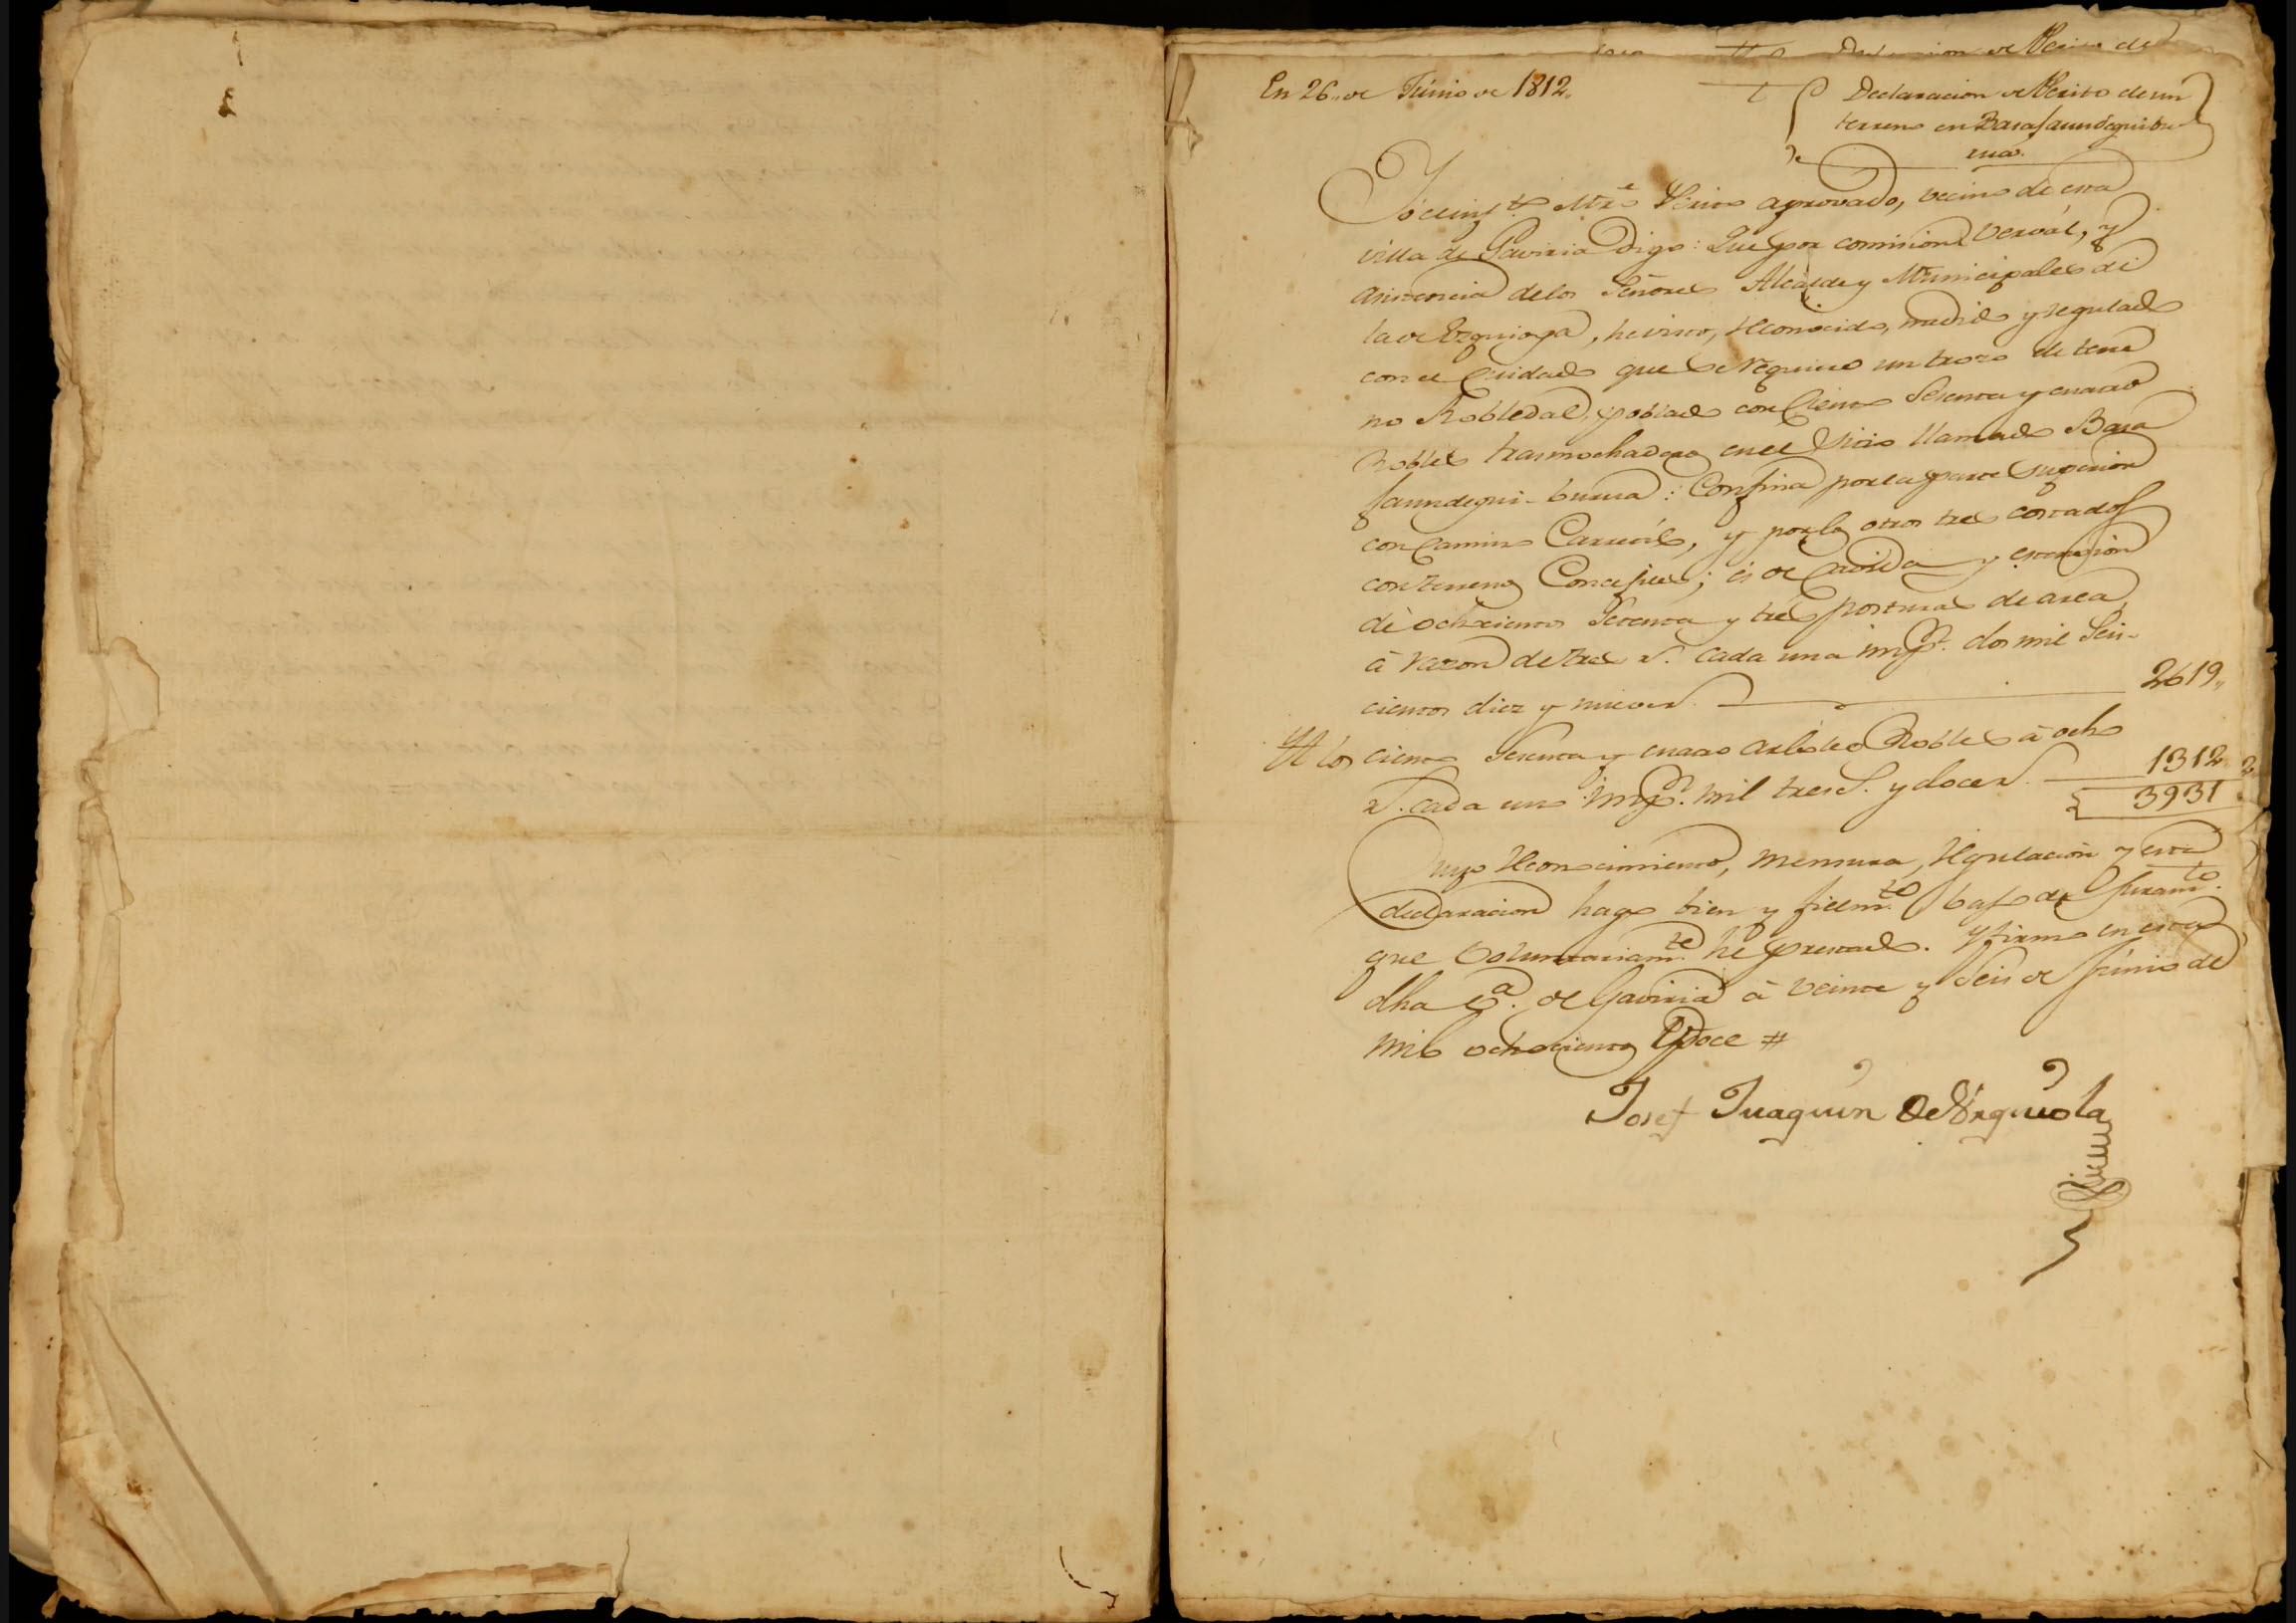 Declaracion de Perito de
En 26,, de Junio de 1812,,
Declaracion de Perito de un
terreno en Basajaundeguibu-
rua.
Yo el inf.to Mre Perito aprovado, vecino de esta
villa de Gaviria Digo: Que por comision Vervál, y
asistencia de los Señores Alcalde y Municipales de
la de Ezquioga, he visto, reconocido, medido y regulado
con el Cuidado que se requiere un trozo de terre
no Robledal, poblado con Ciento Sesenta y cuatro
Robles trasmochaderos en el Sitio llamado Basa
jaundegui-burua: Confina por la parte superior
con Camino Carretil, y por los otros tres costados
con terrenos Concejiles; es de Cavida y extension
de ochocientos Setenta y tres posturas de area,
á razon de tres r.s cada una imp.n dos mil Seis-
cientos diez y nueve r.s 2619,,
Yt los ciento Sesenta y cuatro arboles Robles á ocho
r.s cada uno imp.n mil tresc.s y doce r.s 1312,,
3931
Cuyo reconocimiento, mensura, regulacion y esta
declaracion hago bien y fielm.te bajo de juram.to
que Voluntariam.te he prestado. Y firmo en esta
dha v.a de Gaviria á veinte y Seis de Junio de
mil ochocientos y Doce #
Josef Juaquin De Urguiola